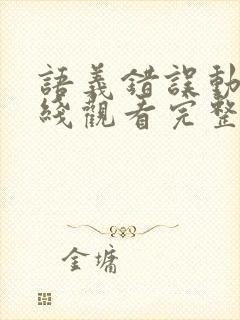 語義錯誤動
綫觀看完整
金墉